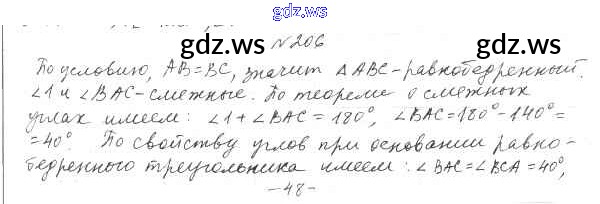 gdz.ws
№ 206
gdz.ws gdz.ws
По условию, AB=BC, значит △ABC-равнобедренный.
∠1 и ∠BAC-смежные. По теореме о смежных
углах имеем: ∠1+∠BAC = 180°, ∠BAC=180°-140°=
=40°. По свойству углов при основании равно-
бедренного треугольника имеем: ∠BAC=∠BCA=40°,
-48-
gdz.ws gdz.ws